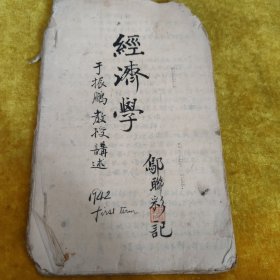 經濟學
于振鵬教授講述
鄔聯彩記
1942
First Term